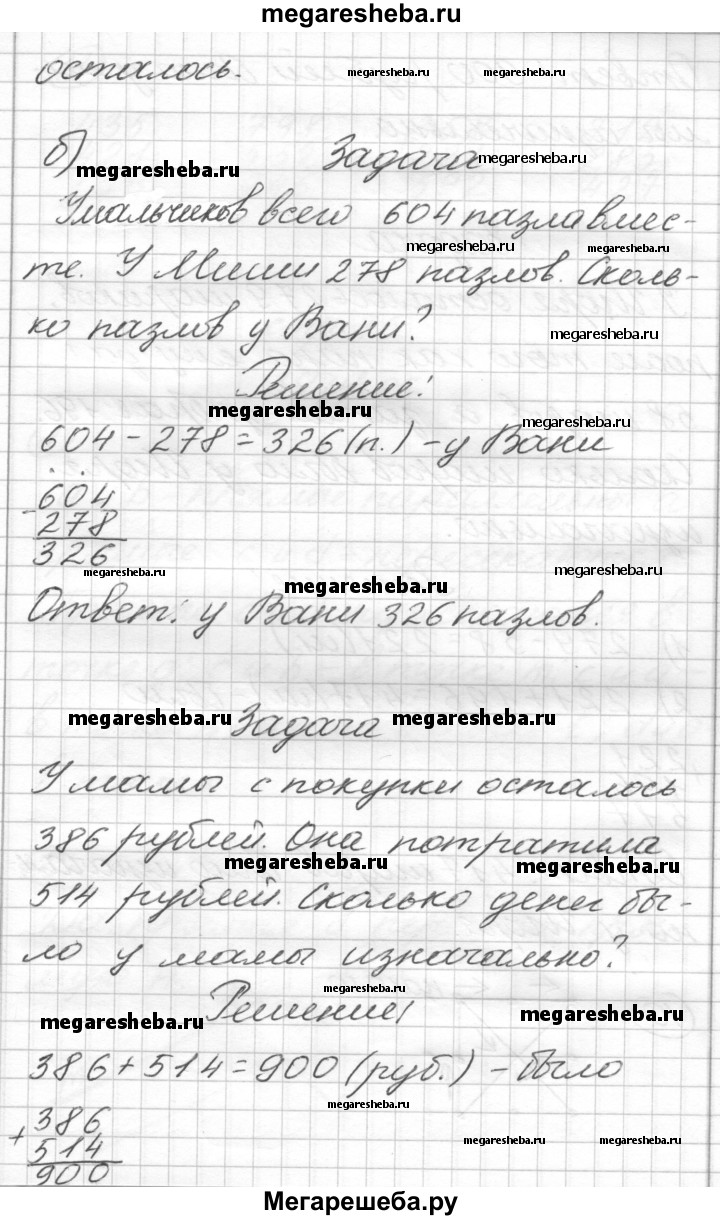 megaresheba.ru
осталось.
megaresheba.ru megaresheba.ru
б) Задача
megaresheba.ru megaresheba.ru
У мальчиков всего 604 пазла вмес-
megaresheba.ru megaresheba.ru
те. У Миши 278 пазлов. Сколь-
ко пазлов у Вани?
megaresheba.ru
Решение:
megaresheba.ru megaresheba.ru
604 - 278 = 326 (п.) - у Вани
- 604
278
326
megaresheba.ru megaresheba.ru megaresheba.ru
Ответ: у Вани 326 пазлов.
megaresheba.ru Задача megaresheba.ru
У мамы с покупки осталось
386 рублей. Она потратила
megaresheba.ru megaresheba.ru
514 рублей. Сколько денег бы-
ло у мамы изначально?
megaresheba.ru
Решение:
megaresheba.ru megaresheba.ru
386 + 514 = 900 (руб.) - было
megaresheba.ru
+ 386
514
900
megaresheba.ru megaresheba.ru
Мегарешеба.ру